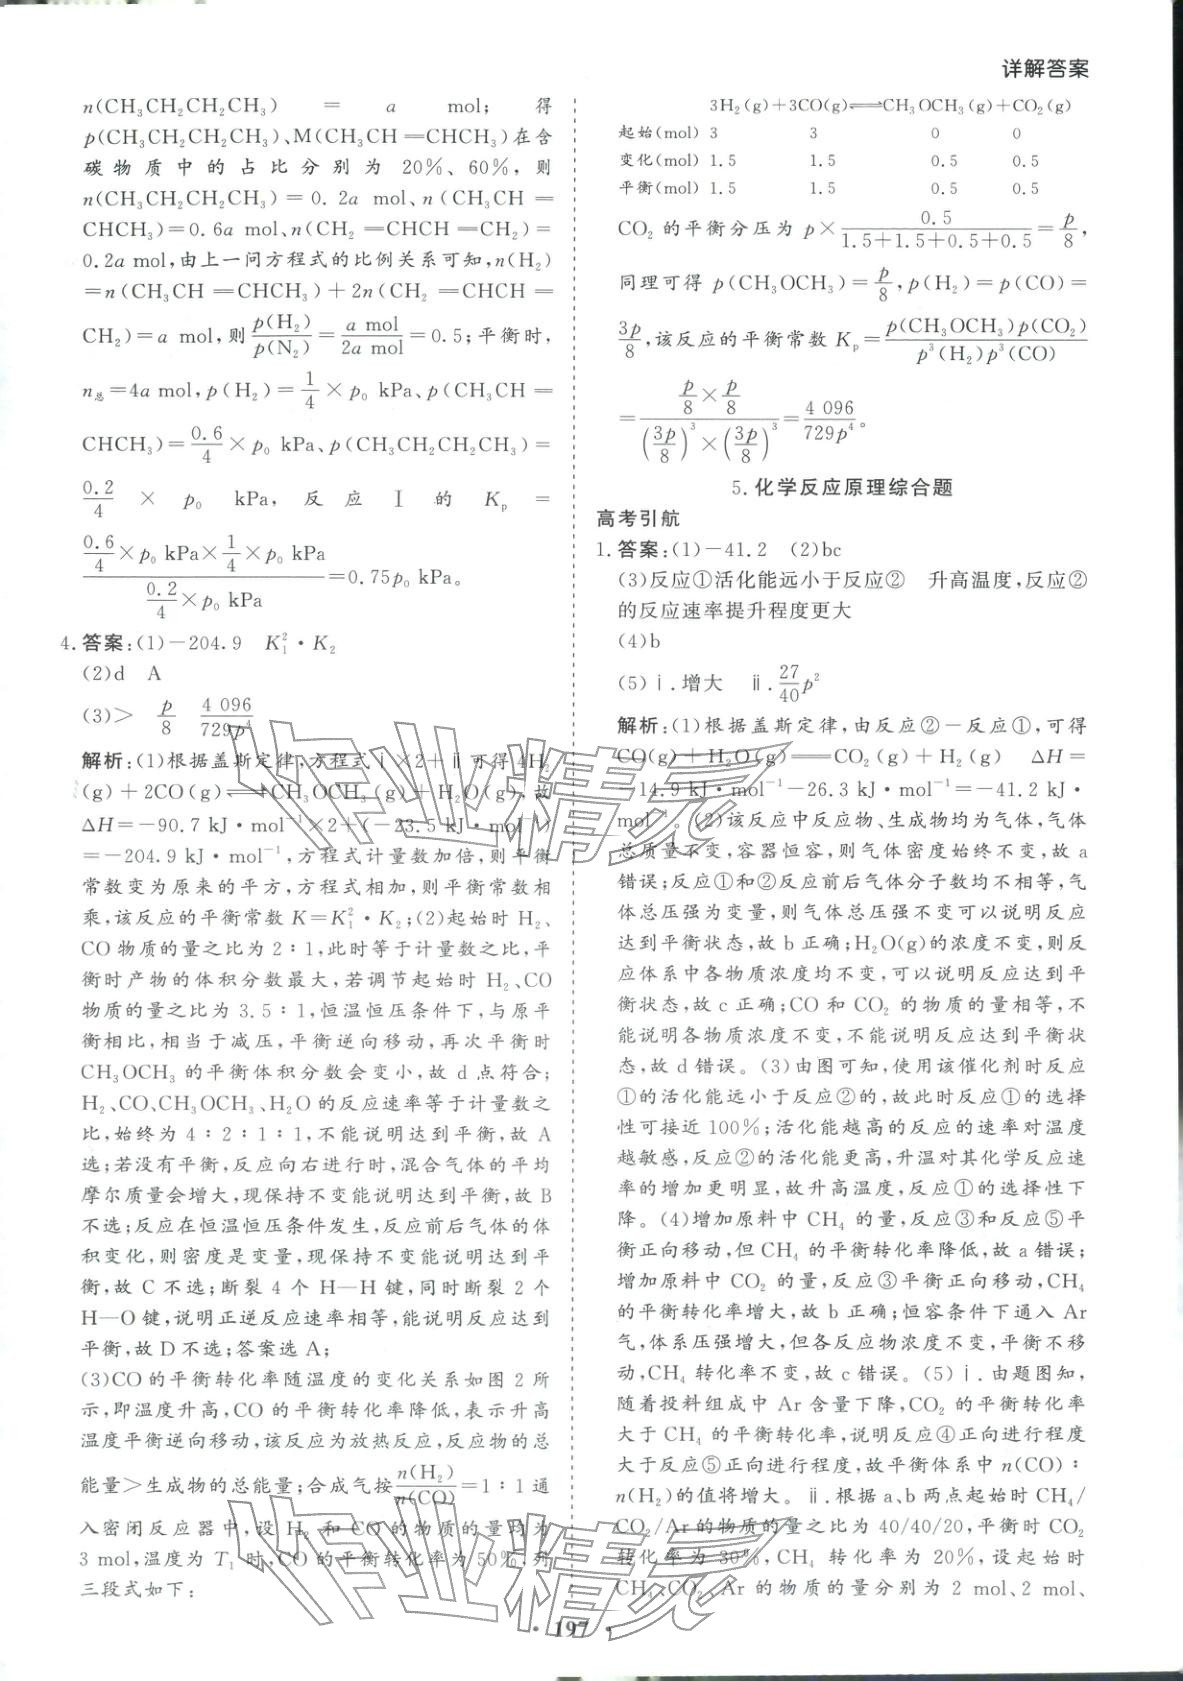 详解答案
n(CH₃CH₂CH₂CH₃) = a mol；得
p(CH₃CH₂CH₂CH₃)、M(CH₃CH=CHCH₃)在含
碳物质中的占比分别为 20%、60%，则
n(CH₃CH₂CH₂CH₃)=0.2a mol、n(CH₃CH=
CHCH₃)=0.6a mol、n(CH₂=CHCH=CH₂)=
0.2a mol，由上一问方程式的比例关系可知，n(H₂)
=n(CH₃CH=CHCH₃)+2n(CH₂=CHCH=
CH₂)=a mol，则p(H₂)/p(N₂)=a mol/2a mol=0.5；平衡时，
n总=4a mol，p(H₂)=1/4×p₀ kPa、p(CH₃CH=
CHCH₃)=0.6/4×p₀ kPa、p(CH₃CH₂CH₂CH₃)=
0.2/4 × p₀ kPa，反应Ⅰ的 Kp =
(0.6/4×p₀ kPa×1/4×p₀ kPa)/(0.2/4×p₀ kPa)=0.75p₀ kPa。
4.答案：(1)-204.9 K₁²·K₂
(2)d A
(3)> p/8 4 096/729p⁴
解析：(1)根据盖斯定律，方程式ⅰ×2+ⅱ可得 4H₂
(g)+2CO(g)⇌CH₃OCH₃(g)+H₂O(g)，故
ΔH=-90.7 kJ·mol⁻¹×2+(-23.5 kJ·mol⁻¹)
=-204.9 kJ·mol⁻¹，方程式计量数加倍，则平衡
常数变为原来的平方，方程式相加，则平衡常数相
乘，该反应的平衡常数 K=K₁²·K₂；(2)起始时 H₂、
CO 物质的量之比为 2∶1，此时等于计量数之比，平
衡时产物的体积分数最大，若调节起始时 H₂、CO
物质的量之比为 3.5∶1，恒温恒压条件下，与原平
衡相比，相当于减压，平衡逆向移动，再次平衡时
CH₃OCH₃ 的平衡体积分数会变小，故 d 点符合；
H₂、CO、CH₃OCH₃、H₂O 的反应速率等于计量数之
比，始终为 4∶2∶1∶1，不能说明达到平衡，故 A
选；若没有平衡，反应向右进行时，混合气体的平均
摩尔质量会增大，现保持不变能说明达到平衡，故 B
不选；反应在恒温恒压条件发生，反应前后气体的体
积变化，则密度是变量，现保持不变能说明达到平
衡，故 C 不选；断裂 4 个 H—H 键，同时断裂 2 个
H—O 键，说明正逆反应速率相等，能说明反应达到
平衡，故 D 不选；答案选 A；
(3)CO 的平衡转化率随温度的变化关系如图 2 所
示，即温度升高，CO 的平衡转化率降低，表示升高
温度平衡逆向移动，该反应为放热反应，反应物的总
能量>生成物的总能量；合成气按n(H₂)/n(CO)=1∶1通
入密闭反应器中，设 H₂ 和 CO 的物质的量均为
3 mol，温度为 T₁ 时，CO 的平衡转化率为 50%，列
三段式如下：
3H₂(g)+3CO(g)⇌CH₃OCH₃(g)+CO₂(g)
起始(mol) 3 3 0 0
变化(mol) 1.5 1.5 0.5 0.5
平衡(mol) 1.5 1.5 0.5 0.5
CO₂ 的平衡分压为 p×0.5/(1.5+1.5+0.5+0.5)=p/8，
同理可得 p(CH₃OCH₃)=p/8，p(H₂)=p(CO)=
3p/8，该反应的平衡常数 Kp=p(CH₃OCH₃)p(CO₂)/(p³(H₂)p³(CO))
=(p/8×p/8)/((3p/8)³×(3p/8)³)=4 096/729p⁴。
5.化学反应原理综合题
高考引航
1.答案：(1)-41.2 (2)bc
(3)反应①活化能远小于反应② 升高温度，反应②
的反应速率提升程度更大
(4)b
(5)ⅰ.增大 ⅱ.27/40 p²
解析：(1)根据盖斯定律，由反应②-反应①，可得
CO(g)+H₂O(g)══CO₂(g)+H₂(g) ΔH=
-14.9 kJ·mol⁻¹-26.3 kJ·mol⁻¹=-41.2 kJ·
mol⁻¹。(2)该反应中反应物、生成物均为气体，气体
总质量不变，容器恒容，则气体密度始终不变，故 a
错误；反应①和②反应前后气体分子数均不相等，气
体总压强为变量，则气体总压强不变可以说明反应
达到平衡状态，故 b 正确；H₂O(g)的浓度不变，则反
应体系中各物质浓度均不变，可以说明反应达到平
衡状态，故 c 正确；CO 和 CO₂ 的物质的量相等，不
能说明各物质浓度不变，不能说明反应达到平衡状
态，故 d 错误。(3)由图可知，使用该催化剂时反应
①的活化能远小于反应②的，故此时反应①的选择
性可接近 100%；活化能越高的反应的速率对温度
越敏感，反应②的活化能更高，升温对其化学反应速
率的增加更明显，故升高温度，反应①的选择性下
降。(4)增加原料中 CH₄ 的量，反应③和反应⑤平
衡正向移动，但 CH₄ 的平衡转化率降低，故 a 错误；
增加原料中 CO₂ 的量，反应③平衡正向移动，CH₄
的平衡转化率增大，故 b 正确；恒容条件下通入 Ar
气，体系压强增大，但各反应物浓度不变，平衡不移
动，CH₄ 转化率不变，故 c 错误。(5)ⅰ.由题图知，
随着投料组成中 Ar 含量下降，CO₂ 的平衡转化率
大于 CH₄ 的平衡转化率，说明反应④正向进行程度
大于反应⑤正向进行程度，故平衡体系中 n(CO)∶
n(H₂)的值将增大。ⅱ.根据 a、b 两点起始时 CH₄/
CO₂/Ar 的物质的量之比为 40/40/20，平衡时 CO₂
转化率为 30%，CH₄ 转化率为 20%，设起始时
CH₄、CO₂、Ar 的物质的量分别为 2 mol、2 mol、
作业精灵
作业精灵
·197·